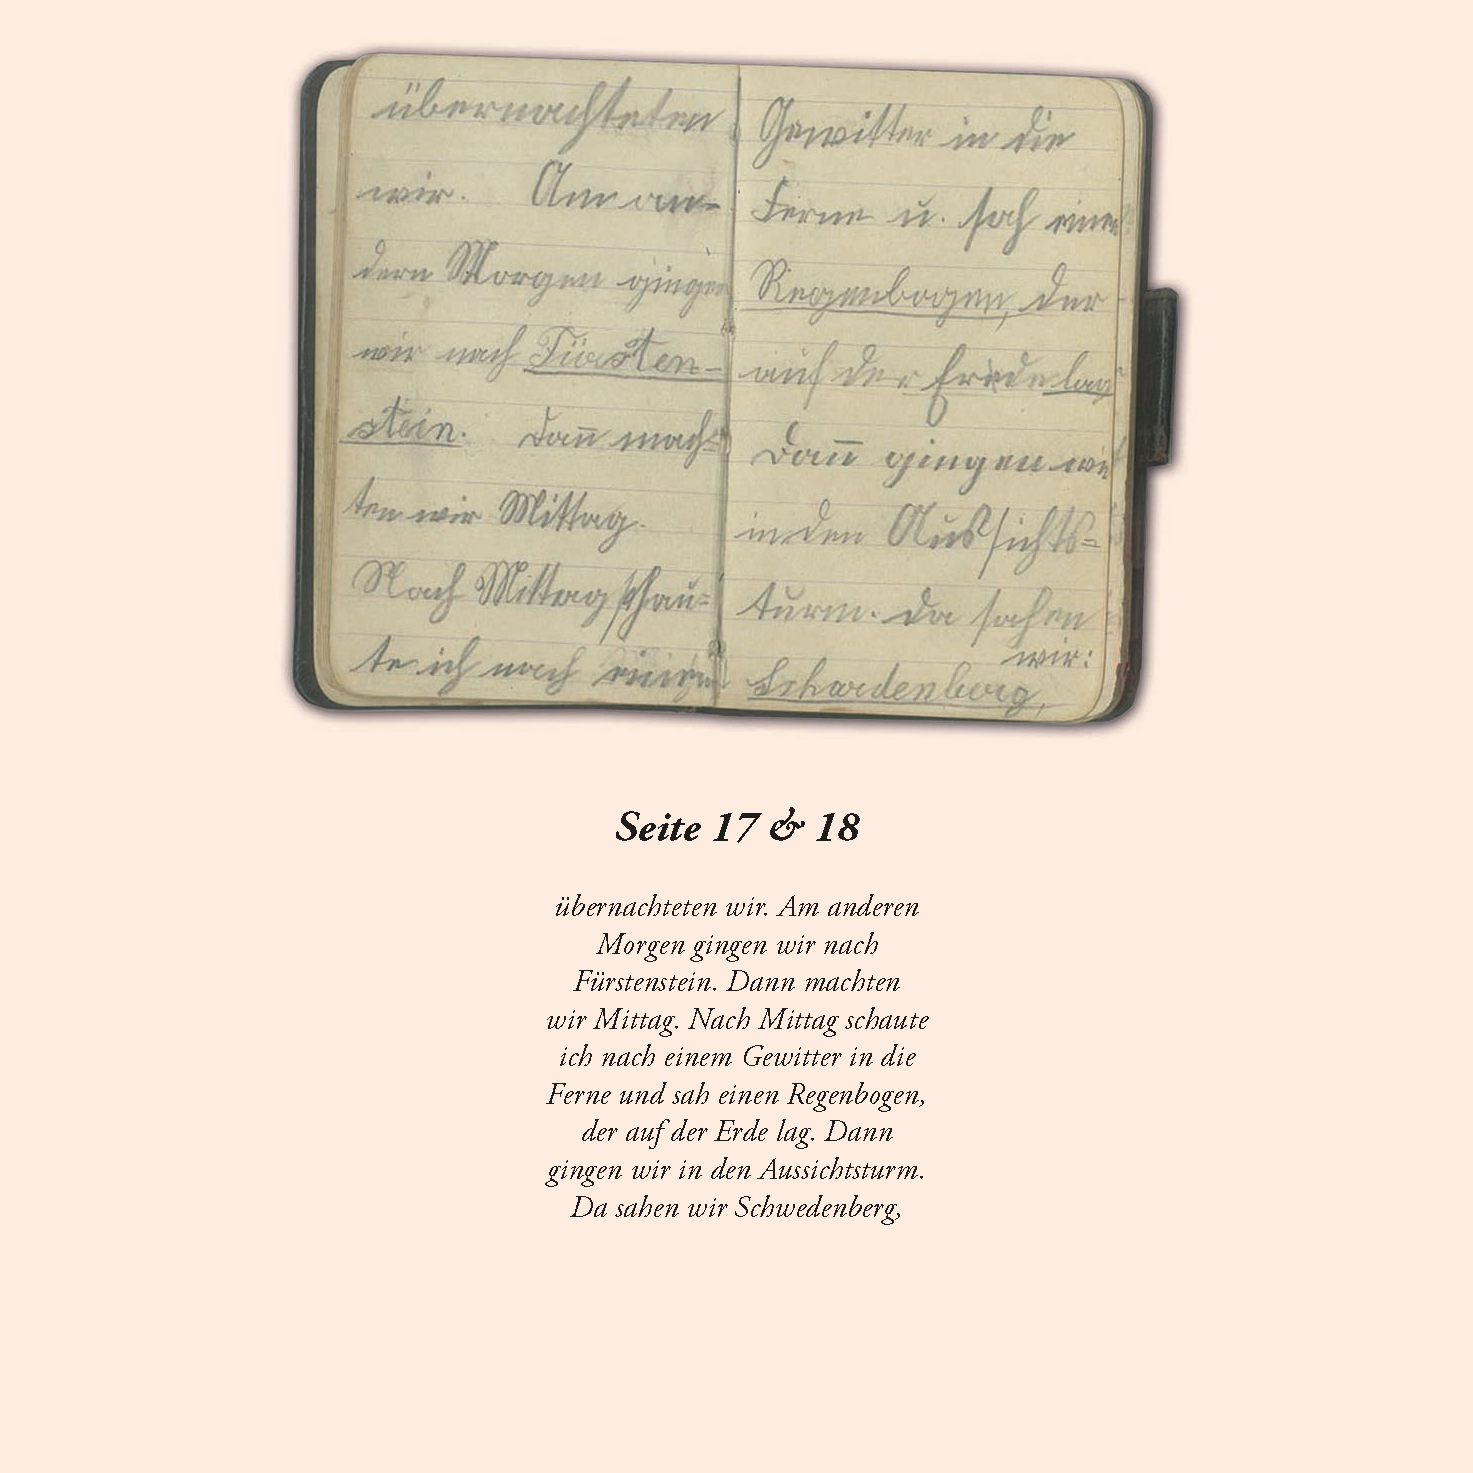 übernachteten
wir. Am an-
dern Morgen gingen
wir nach Fürsten-
stein. Dann mach=
ten wir Mittag.
Nach Mittag schau=
te ich nach
Gewitter in die
Ferne u. sah einen
Regenbogen, der
auf der Erde lag.
Dann gingen wir
in den Aussichts=
turm. Da sahen
wir:
Schardenberg,
Seite 17 & 18
übernachteten wir. Am anderen
Morgen gingen wir nach
Fürstenstein. Dann machten
wir Mittag. Nach Mittag schaute
ich nach einem Gewitter in die
Ferne und sah einen Regenbogen,
der auf der Erde lag. Dann
gingen wir in den Aussichtsturm.
Da sahen wir Schwedenberg,